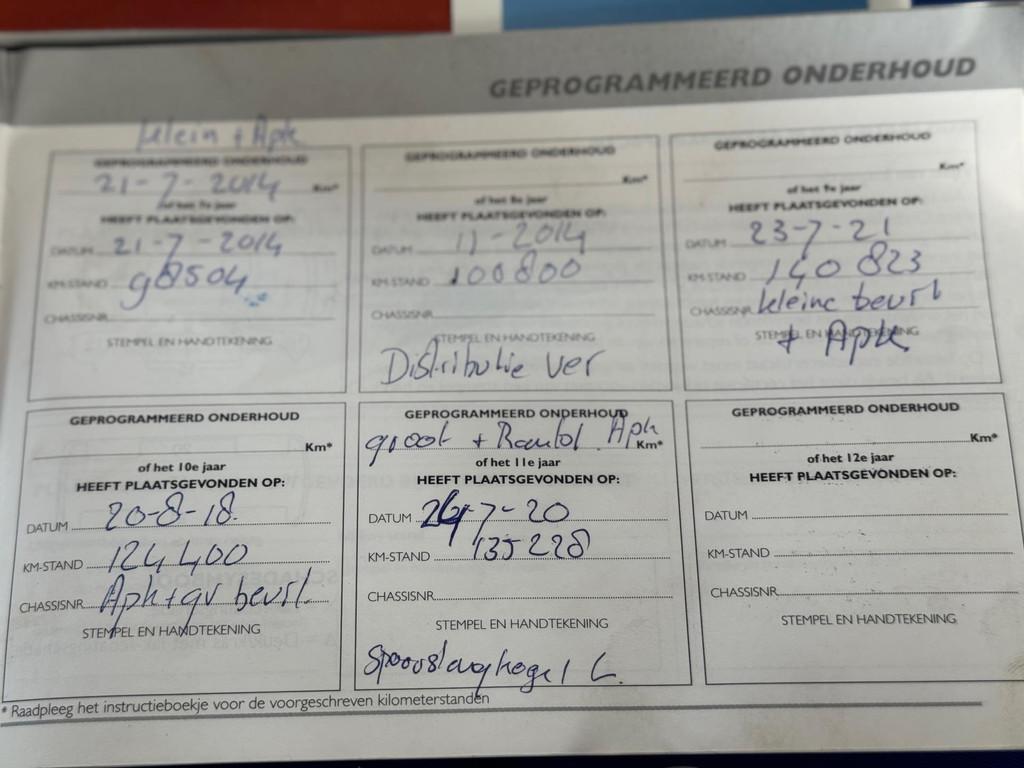 GEPROGRAMMEERD ONDERHOUD
klein + Apk
GEPROGRAMMEERD ONDERHOUD
21-7-2014 Km*
of het 7e jaar
HEEFT PLAATSGEVONDEN OP:
DATUM 21-7-2014
KM-STAND 98504
CHASSISNR.
STEMPEL EN HANDTEKENING
GEPROGRAMMEERD ONDERHOUD
Km*
of het 8e jaar
HEEFT PLAATSGEVONDEN OP:
DATUM 11-2014
KM-STAND 100800
CHASSISNR.
STEMPEL EN HANDTEKENING
Distributie ver
GEPROGRAMMEERD ONDERHOUD
Km*
of het 9e jaar
HEEFT PLAATSGEVONDEN OP:
DATUM 23-7-21
KM-STAND 140 823
CHASSISNR. kleine beurt
STEMPEL EN HANDTEKENING
+ Apk
GEPROGRAMMEERD ONDERHOUD
Km*
of het 10e jaar
HEEFT PLAATSGEVONDEN OP:
DATUM 20-8-18.
KM-STAND 124400
CHASSISNR. Apk+gr beurt.
STEMPEL EN HANDTEKENING
GEPROGRAMMEERD ONDERHOUD
groot + Apk
Km*
of het 11e jaar
HEEFT PLAATSGEVONDEN OP:
DATUM 7-20
KM-STAND 135228
CHASSISNR.
STEMPEL EN HANDTEKENING
Spoorstangkogel L.
GEPROGRAMMEERD ONDERHOUD
Km*
of het 12e jaar
HEEFT PLAATSGEVONDEN OP:
DATUM
KM-STAND
CHASSISNR.
STEMPEL EN HANDTEKENING
* Raadpleeg het instructieboekje voor de voorgeschreven kilometerstanden